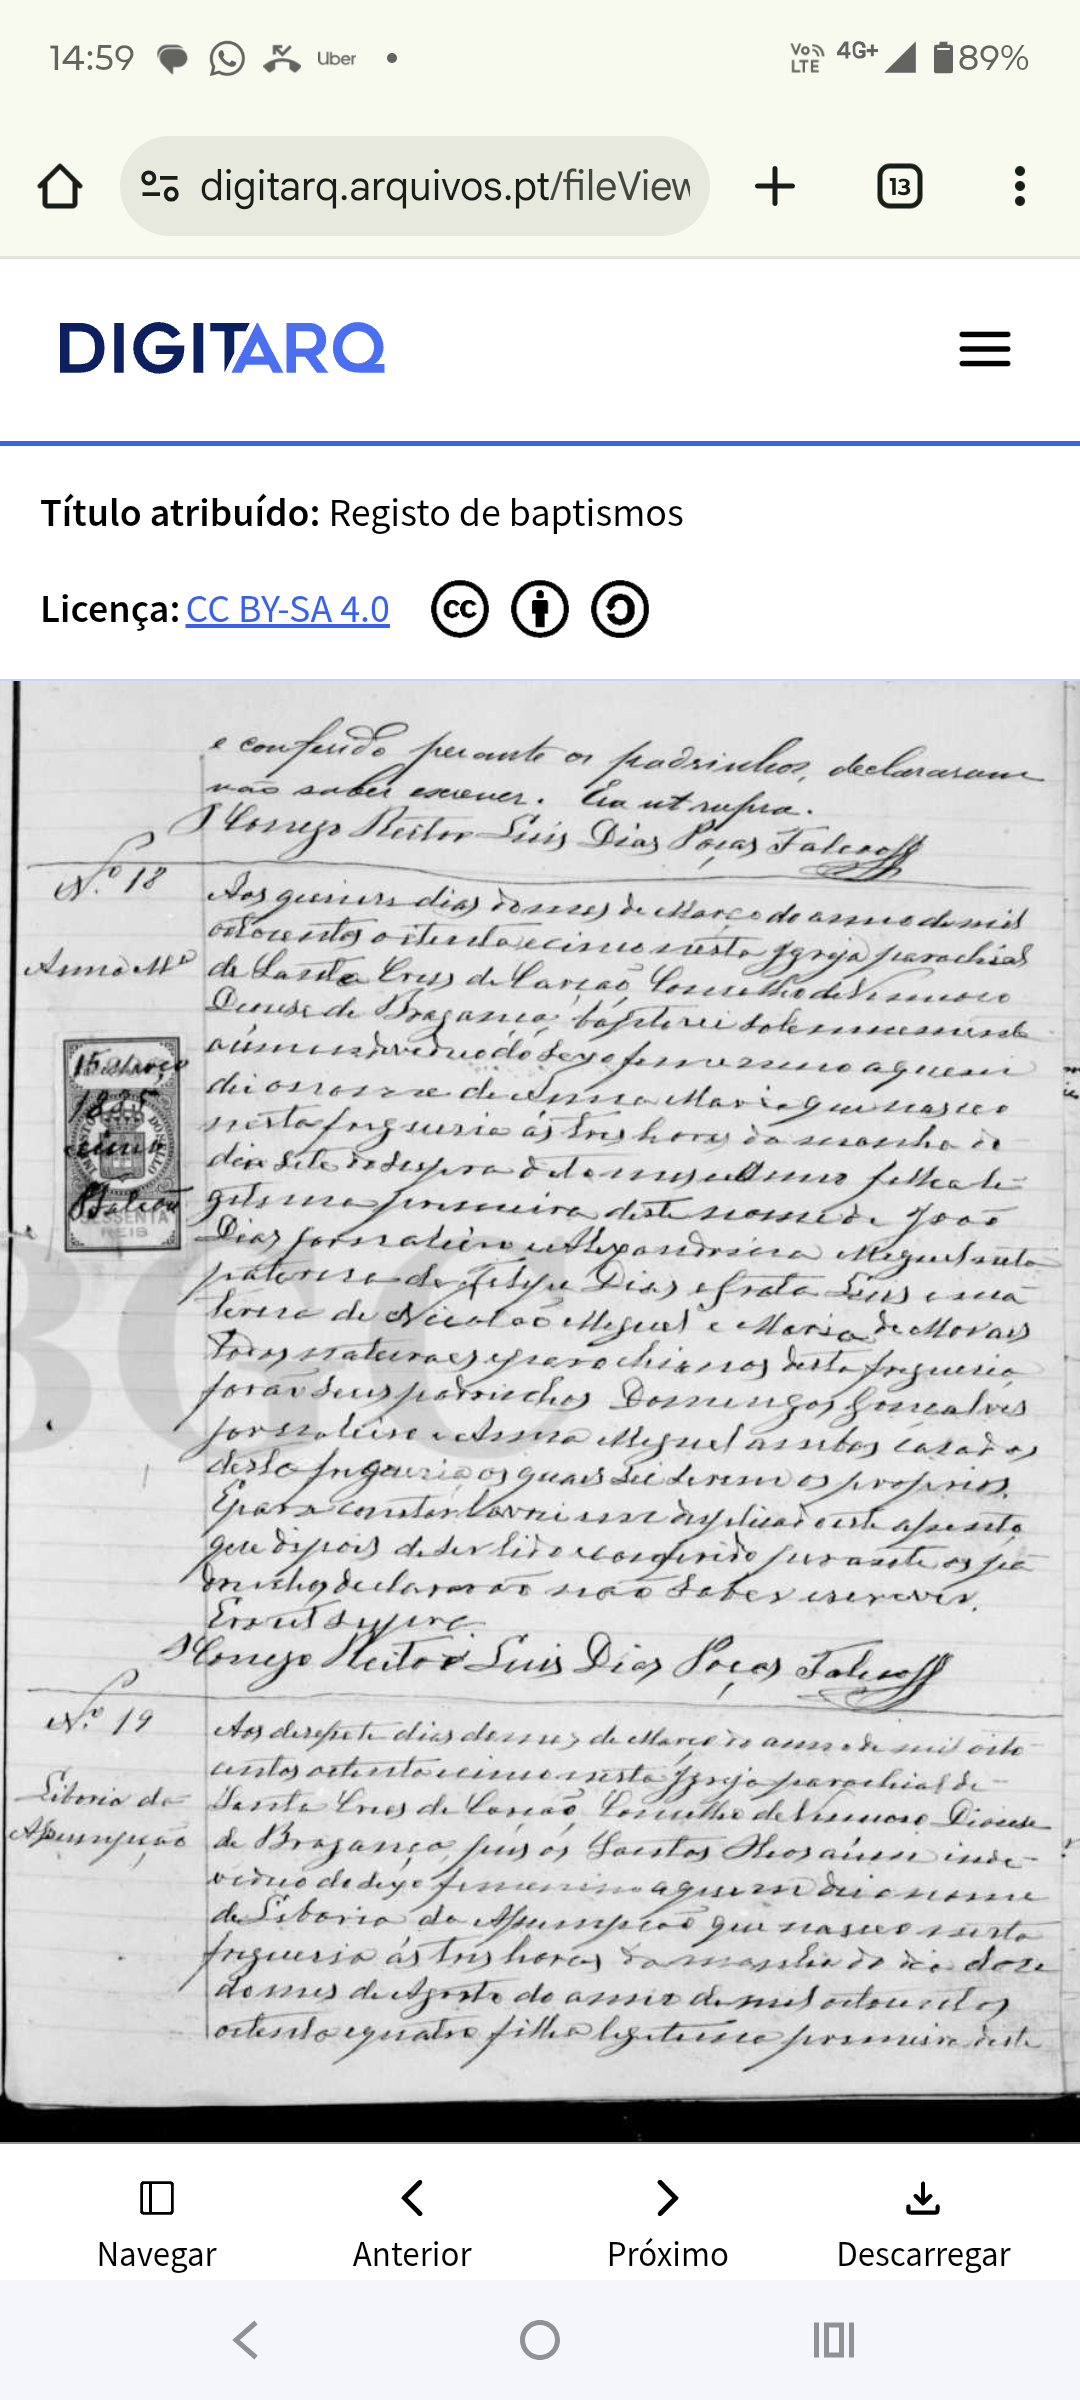 14:59 Uber • Vo LTE 4G+ 89%
digitarq.arquivos.pt/fileView 13
DIGITARQ
Título atribuído: Registo de baptismos
Licença: CC BY-SA 4.0
e conferido perante os padrinhos, declararam
não saber escrever. Era ut supra.
O Conego Reitor Luis Dias Poças Falcão
N.º 18
Anna M.ª
15 Março
1885
Falcão
SESSENTA
REIS
Aos quinse dias do mes de Março do anno de mil
oitocentos oitenta e cinco nesta Igreja parochial
de Santa Crus de Carção, Concelho de Vimioso
Diocese de Bragança, baptisei solemnemente
a úm individuo do sexo femenino a quem
dei o nome de Anna Maria que nasceo
nesta freguesia ás tres horas da manha do
dia sete do mes e anno filha le-
gitima primeira deste nome de João
Dias jornaleiro e Alexandrina Miguel neta
paterna de Felipe Dias e Luis e ma-
terna de Nicolao Miguel e Maria de Morais
todos naturaes e parochianos desta freguesia
forão seus padrinhos Domingos Gonçalves
jornaleiro e Anna Miguel ambos casados
desta freguesia os quaes sei serem os proprios.
E para constar lavrei em duplicado este assento,
que depois de ser lido e conferido perante os pa-
drinhos declararão não saber escrever.
Era ut supra.
O Conego Reitor Luis Dias Poças Falcão
N.º 19
Liboria da
Assumpção
Aos desesete dias do mes de Março do anno de mil oito-
centos oitenta e cinco nesta Igreja parochial de
Santa Crus de Carção, Concelho de Vimioso Diocese
de Bragança, pus os Santos Oleos a úm indi-
viduo do sexo femenino a quem dei o nome
de Liboria da Assumpção que nasceo nesta
freguesia ás tres horas da manha do dia doze
do mes de Agosto do anno de mil oitocentos
oitenta e quatro filha legitima primeira deste
Navegar Anterior Próximo Descarregar